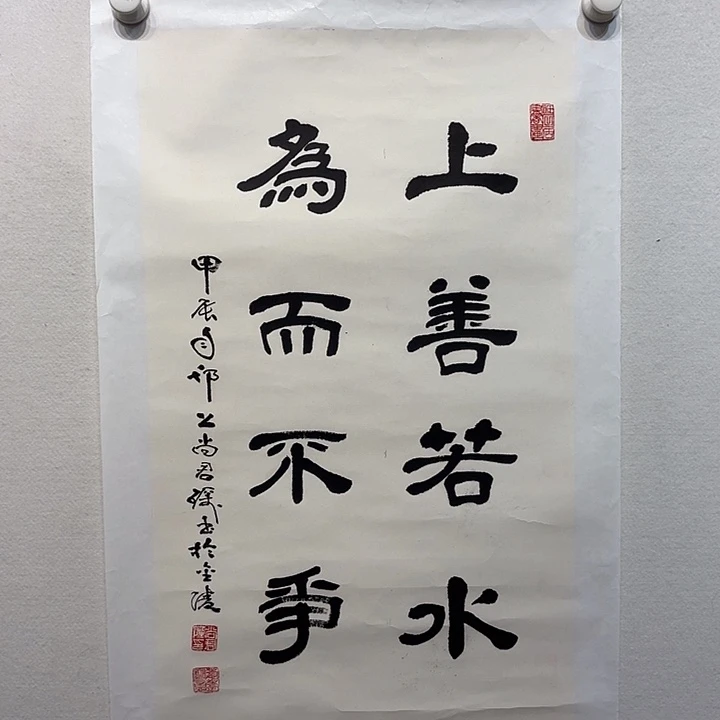 上善若水
為而不爭
甲辰邗上尚君書於金陵